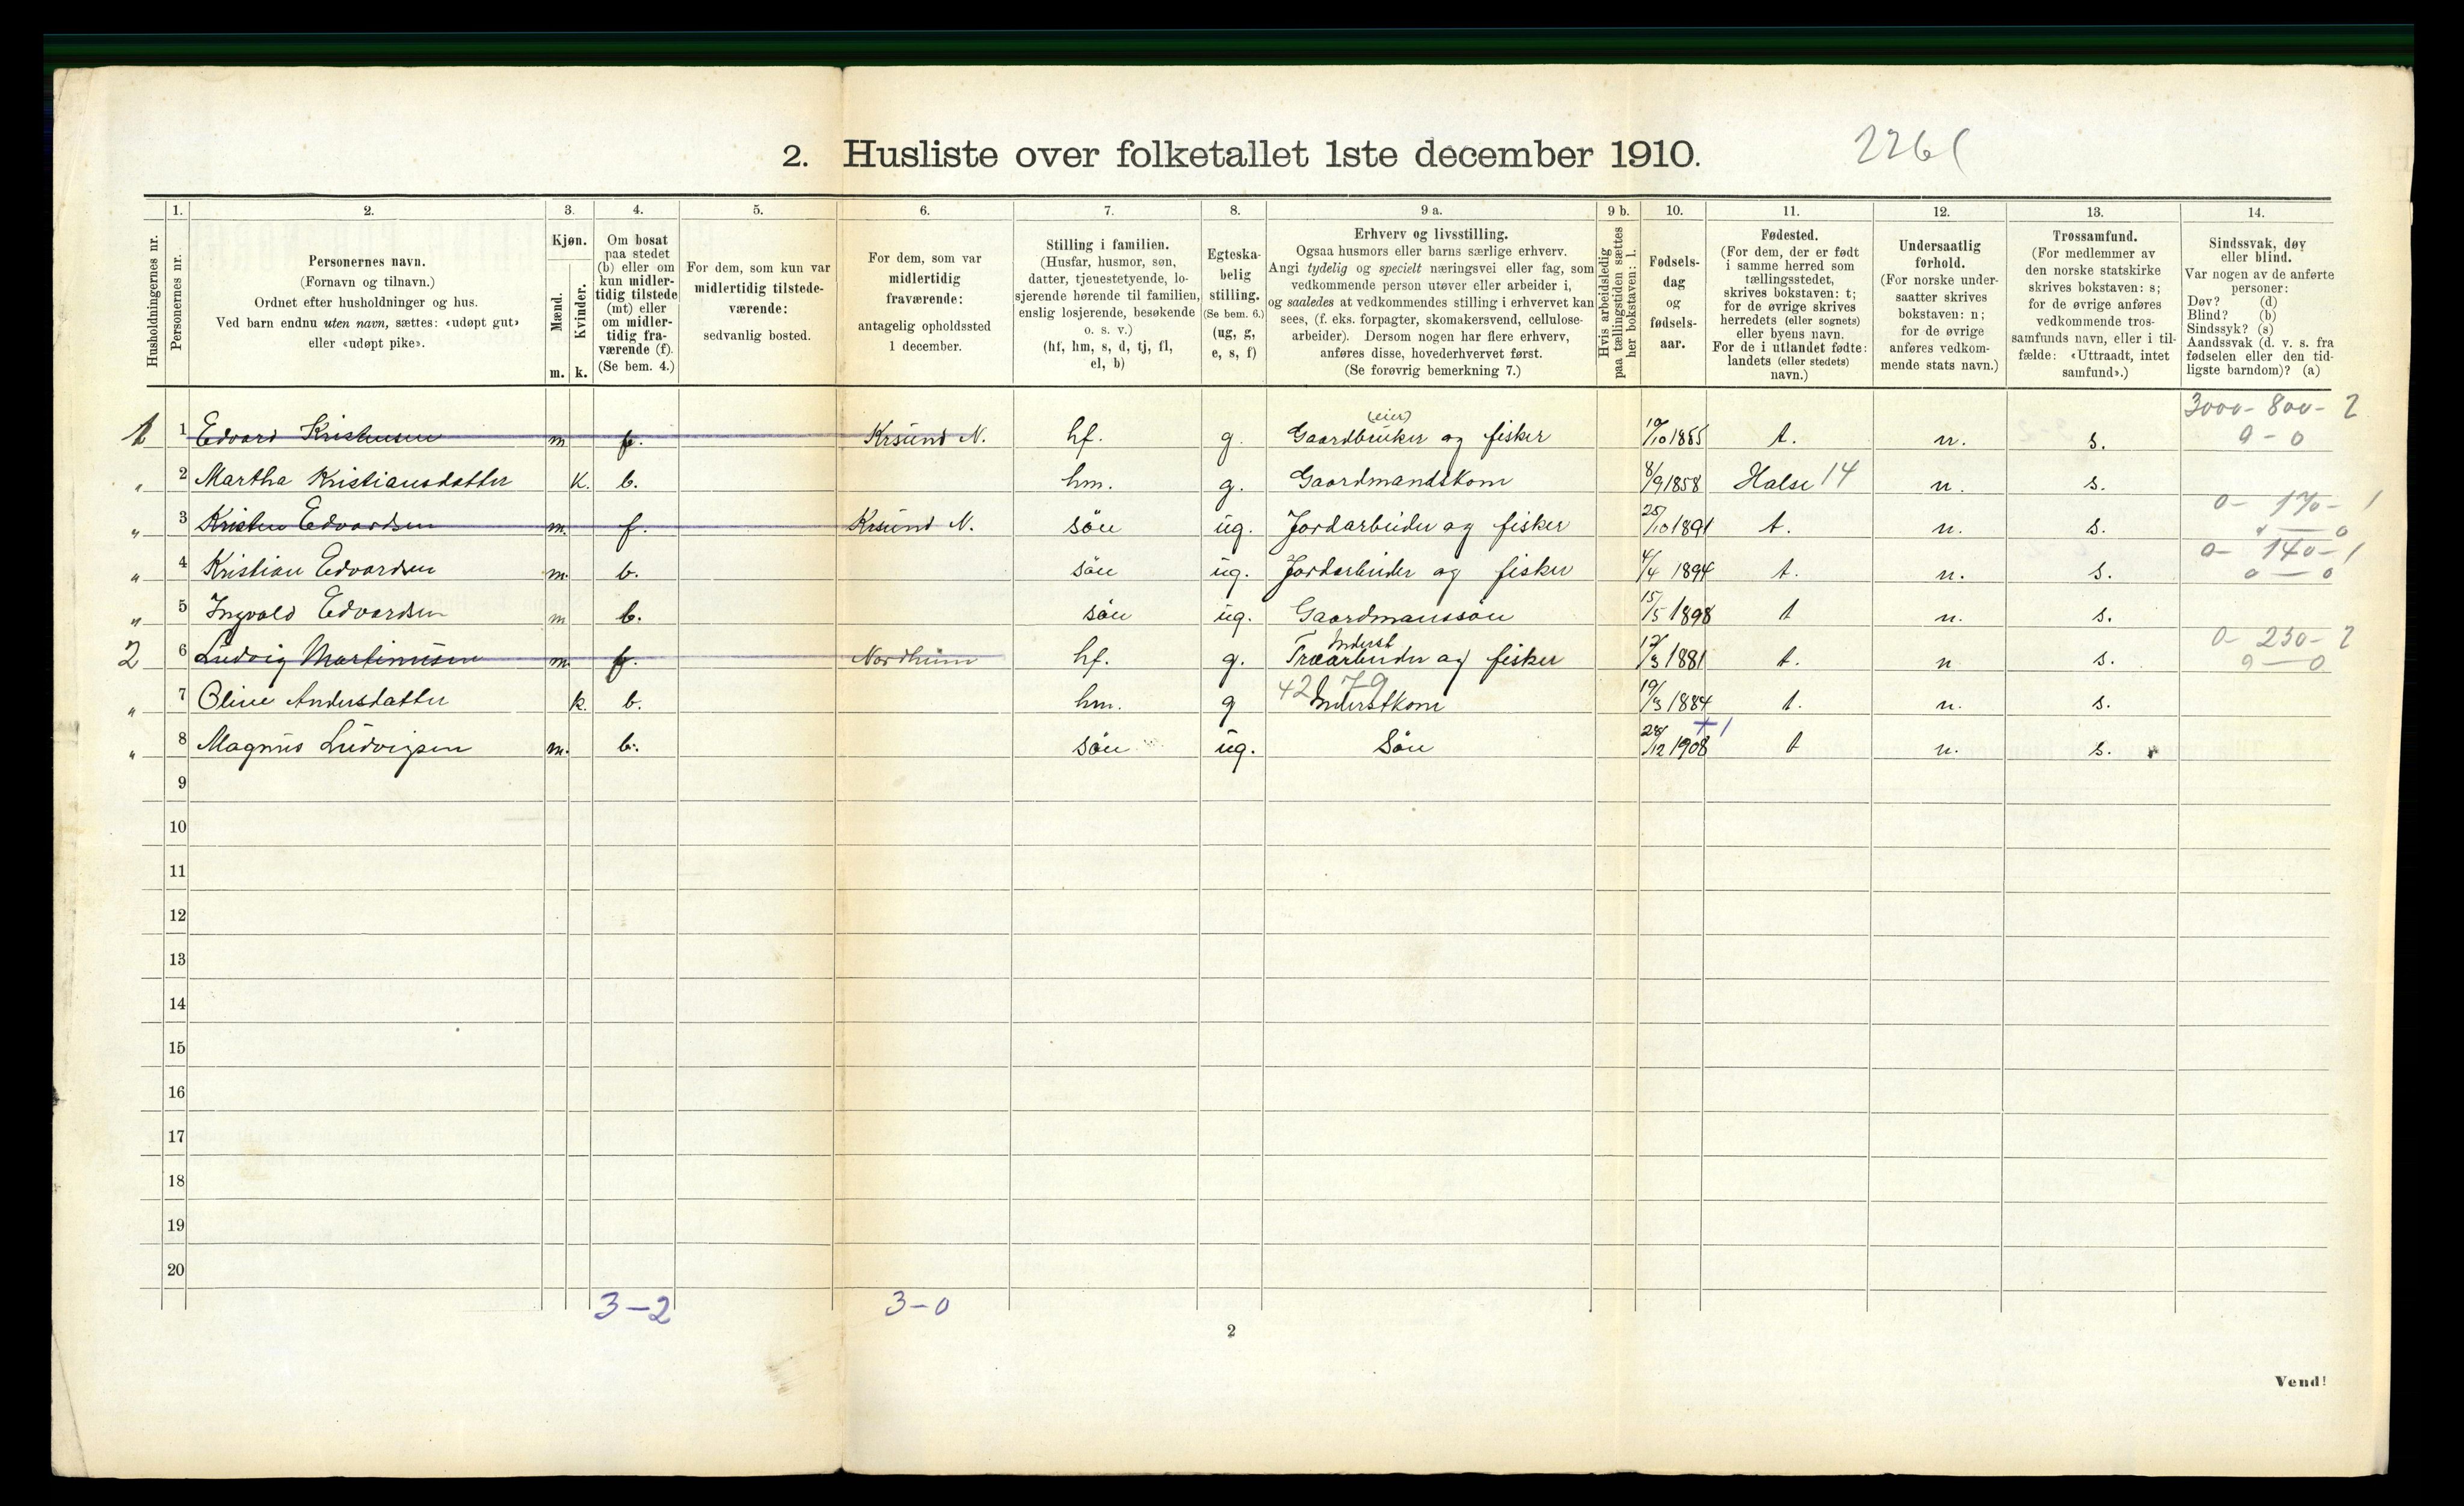 2. Husliste over folketallet 1ste december 1910.
226
1. 2. 3. 4. 5. 6. 7. 8. 9 a. 9 b. 10. 11. 12. 13. 14.
Husholdningernes nr.
Personernes nr.
Personernes navn.
(Fornavn og tilnavn.)
Ordnet efter husholdninger og hus.
Ved barn endnu uten navn, sættes: «udøpt gut»
eller «udøpt pike».
Kjøn.
Mænd.
Kvinder.
m. k.
Om bosat
paa stedet
(b) eller om
kun midler-
tidig tilstede
(mt) eller
om midler-
tidig fra-
værende (f).
(Se bem. 4.)
For dem, som kun var
midlertidig tilstede-
værende:
sedvanlig bosted.
For dem, som var
midlertidig
fraværende:
antagelig opholdssted
1 december.
Stilling i familien.
(Husfar, husmor, søn,
datter, tjenestetyende, lo-
sjerende hørende til familien,
enslig losjerende, besøkende
o. s. v.)
(hf, hm, s, d, tj, fl,
el, b)
Egteska-
belig
stilling.
(Se bem. 6.)
(ug, g,
e, s, f)
Erhverv og livsstilling.
Ogsaa husmors eller barns særlige erhverv.
Angi tydelig og specielt næringsvei eller fag, som
vedkommende person utøver eller arbeider i,
og saaledes at vedkommendes stilling i erhvervet kan
sees, (f. eks. forpagter, skomakersvend, cellulose-
arbeider). Dersom nogen har flere erhverv,
anføres disse, hovederhvervet først.
(Se forøvrig bemerkning 7.)
Hvis arbeidsledig
paa tællingstiden sættes
her bokstaven: l.
Fødsels-
dag
og
fødsels-
aar.
Fødested.
(For dem, der er født
i samme herred som
tællingsstedet,
skrives bokstaven: t;
for de øvrige skrives
herredets (eller sognets)
eller byens navn.
For de i utlandet fødte:
landets (eller stedets)
navn.)
Undersaatlig
forhold.
(For norske under-
saatter skrives
bokstaven: n;
for de øvrige
anføres vedkom-
mende stats navn.)
Trossamfund.
(For medlemmer av
den norske statskirke
skrives bokstaven: s;
for de øvrige anføres
vedkommende tros-
samfunds navn, eller i til-
fælde: «Uttraadt, intet
samfund».)
Sindssvak, døv
eller blind.
Var nogen av de anførte
personer:
Døv? (d)
Blind? (b)
Sindssyk? (s)
Aandssvak (d. v. s. fra
fødselen eller den tid-
ligste barndom)? (a)
3000 - 800 - 2
(eier)
1 1 Edvard Kristensen m. f. Krsund N. hf. g. Gaardbruker og fisker 10/10 1855 t. n. s. 0 - 0
" 2 Martha Kristiansdatter k. b. hm. g. Gaardmandskone 8/9 1858 Halse 14 n. s.
0 - 170 - 1
" 3 Kristen Edvardsen m. f. Krsund N. søn ug. Jordarbeider og fisker 25/10 1891 t. n. s.
0 - 140 - 1
" 4 Kristian Edvardsen m. b. søn ug. Jordarbeider og fisker 4/4 1894 t. n. s. 0 - 0
" 5 Ingvald Edvardsen m b. søn ug. Gaardmanssøn 15/5 1898 t n. s.
Inderst 0 - 230 - 2
2 6 Ludvig Martinusen m. f. Nordheim hf. g. Træarbeider og fisker 12/3 1881 t. n s. 0 - 0
42 79
" 7 Oline Andersdatter k. b. hm. g Inderstkone 19/3 1884 t. n. s.
+1
" 8 Magnus Ludvigsen m. b. søn ug. Søn 28/12 1908 t n. s.
9
10
11
12
13
14
15
16
17
18
19
20
3-2 3-0
2
Vend!